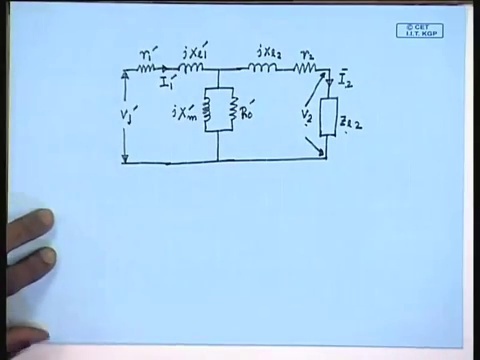 © CET
I.I.T. KGP
r₁' jxₗ₁' jxₗ₂ r₂
I₁' Ī₂
V₁' jX'm R₀' V₂ Zₗ₂